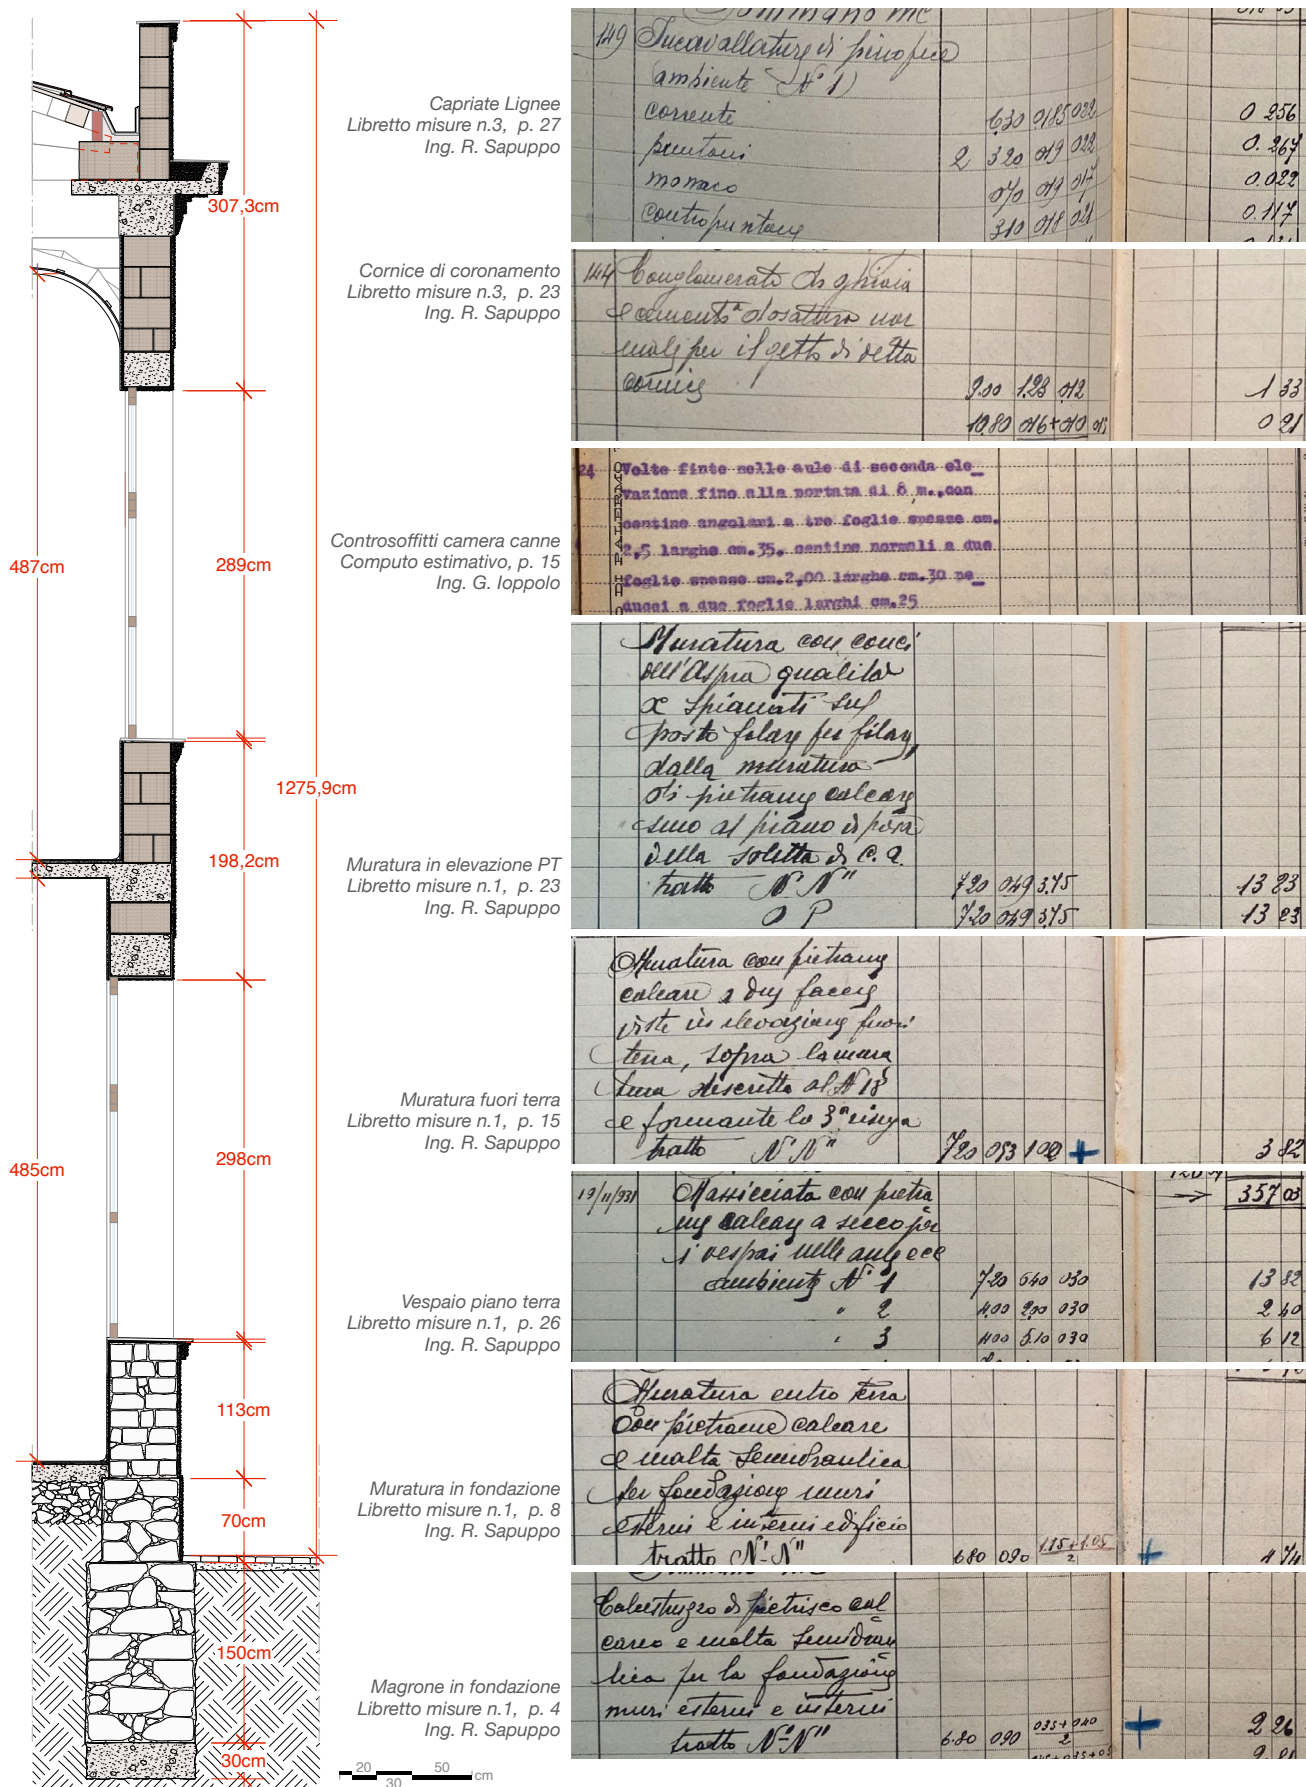 307,3cm
487cm
289cm
1275,9cm
198,2cm
485cm
298cm
113cm
70cm
150cm
30cm
20 50 cm
30
Capriate Lignee
Libretto misure n.3, p. 27
Ing. R. Sapuppo
149 Incavallature di pino pece
(ambiente N° 1)
corrente 6.30 0.185 0.22 0.256
puntoni 2 3.20 0.19 0.22 0.267
monaco 0.70 0.19 0.17 0.022
contropuntone 3.10 0.18 0.21 0.117
Cornice di coronamento
Libretto misure n.3, p. 23
Ing. R. Sapuppo
144 Conglomerato di ghiaia
e cemento dosatura nor
male per il getto di detta
cornice 9.00 1.23 0.12 1 33
10.80 0.16+0.10 0 21
Controsoffitti camera canne
Computo estimativo, p. 15
Ing. G. Ioppolo
24 Volte finte nelle aule di seconda ele_
vazione fino alla portata di 8 m.,con
centine angolari a tre foglie spesse cm.
2,5 larghe cm.35, centine normali a due
foglie spesse cm.2,00 larghe cm.30 pe_
ducci a due foglie larghi cm.25
DI PALERMO
Muratura in elevazione PT
Libretto misure n.1, p. 23
Ing. R. Sapuppo
Muratura con conci
dell'Aspra qualità
spianati sul
posto filare per filare,
dalla muratura
di pietrame calcare
sino al piano di posa
della soletta di C. a.
tratto N' N" 7.20 0.49 3.75 13 23
O P 7.20 0.49 3.75 13 23
Muratura fuori terra
Libretto misure n.1, p. 15
Ing. R. Sapuppo
Muratura con pietrame
calcare a due faccie
viste in elevazione fuori
terra, sopra la mura
tura descritta al N 18
e formante la 3ª risega
tratto N' N" 7.20 0.53 1.00 + 3 82
Vespaio piano terra
Libretto misure n.1, p. 26
Ing. R. Sapuppo
357 03
19/11/931 Massicciata con pietra
me calcare a secco per
i vespai nelle aule ecc
ambiente N° 1 7.20 6.40 0.30 13 82
" 2 4.00 2.00 0.30 2 40
" 3 4.00 5.10 0.30 6 12
Muratura in fondazione
Libretto misure n.1, p. 8
Ing. R. Sapuppo
Muratura entro terra
con pietrame calcare
e malta semidraulica
per fondazione muri
esterni e interni edificio
tratto N'-N" 6.80 0.90 1.15+1.05 / 2 + 4 74
Magrone in fondazione
Libretto misure n.1, p. 4
Ing. R. Sapuppo
Calcestruzzo di pietrisco cal
careo e malta semidrau
lica per la fondazione
muri esterni e interni
tratto N'-N" 6.80 0.90 0.35+0.40 / 2 + 2 26